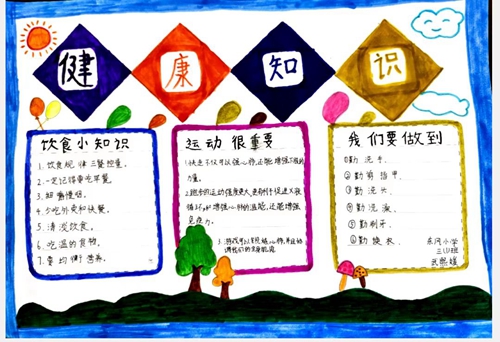 健康知识
饮食小知识
1. 饮食规律三餐控量。
2. 一定记得要吃早餐。
3. 细嚼慢咽。
4. 少吃外卖和快餐。
5. 清淡饮食。
6. 吃温的食物。
7. 营养
运动很重要
1. 快走不仅可以强心肺,还能增强下肢的
力量。
2. 跑步的运动强度更大,更有利于促进
循环,如增强心肺的功能,还能增强
免疫力。
3. 游泳可以
我们要做到
①勤洗手。
②勤剪指甲。
③勤洗头。
④勤洗澡。
⑤勤刷牙。
⑥勤换衣。
小学